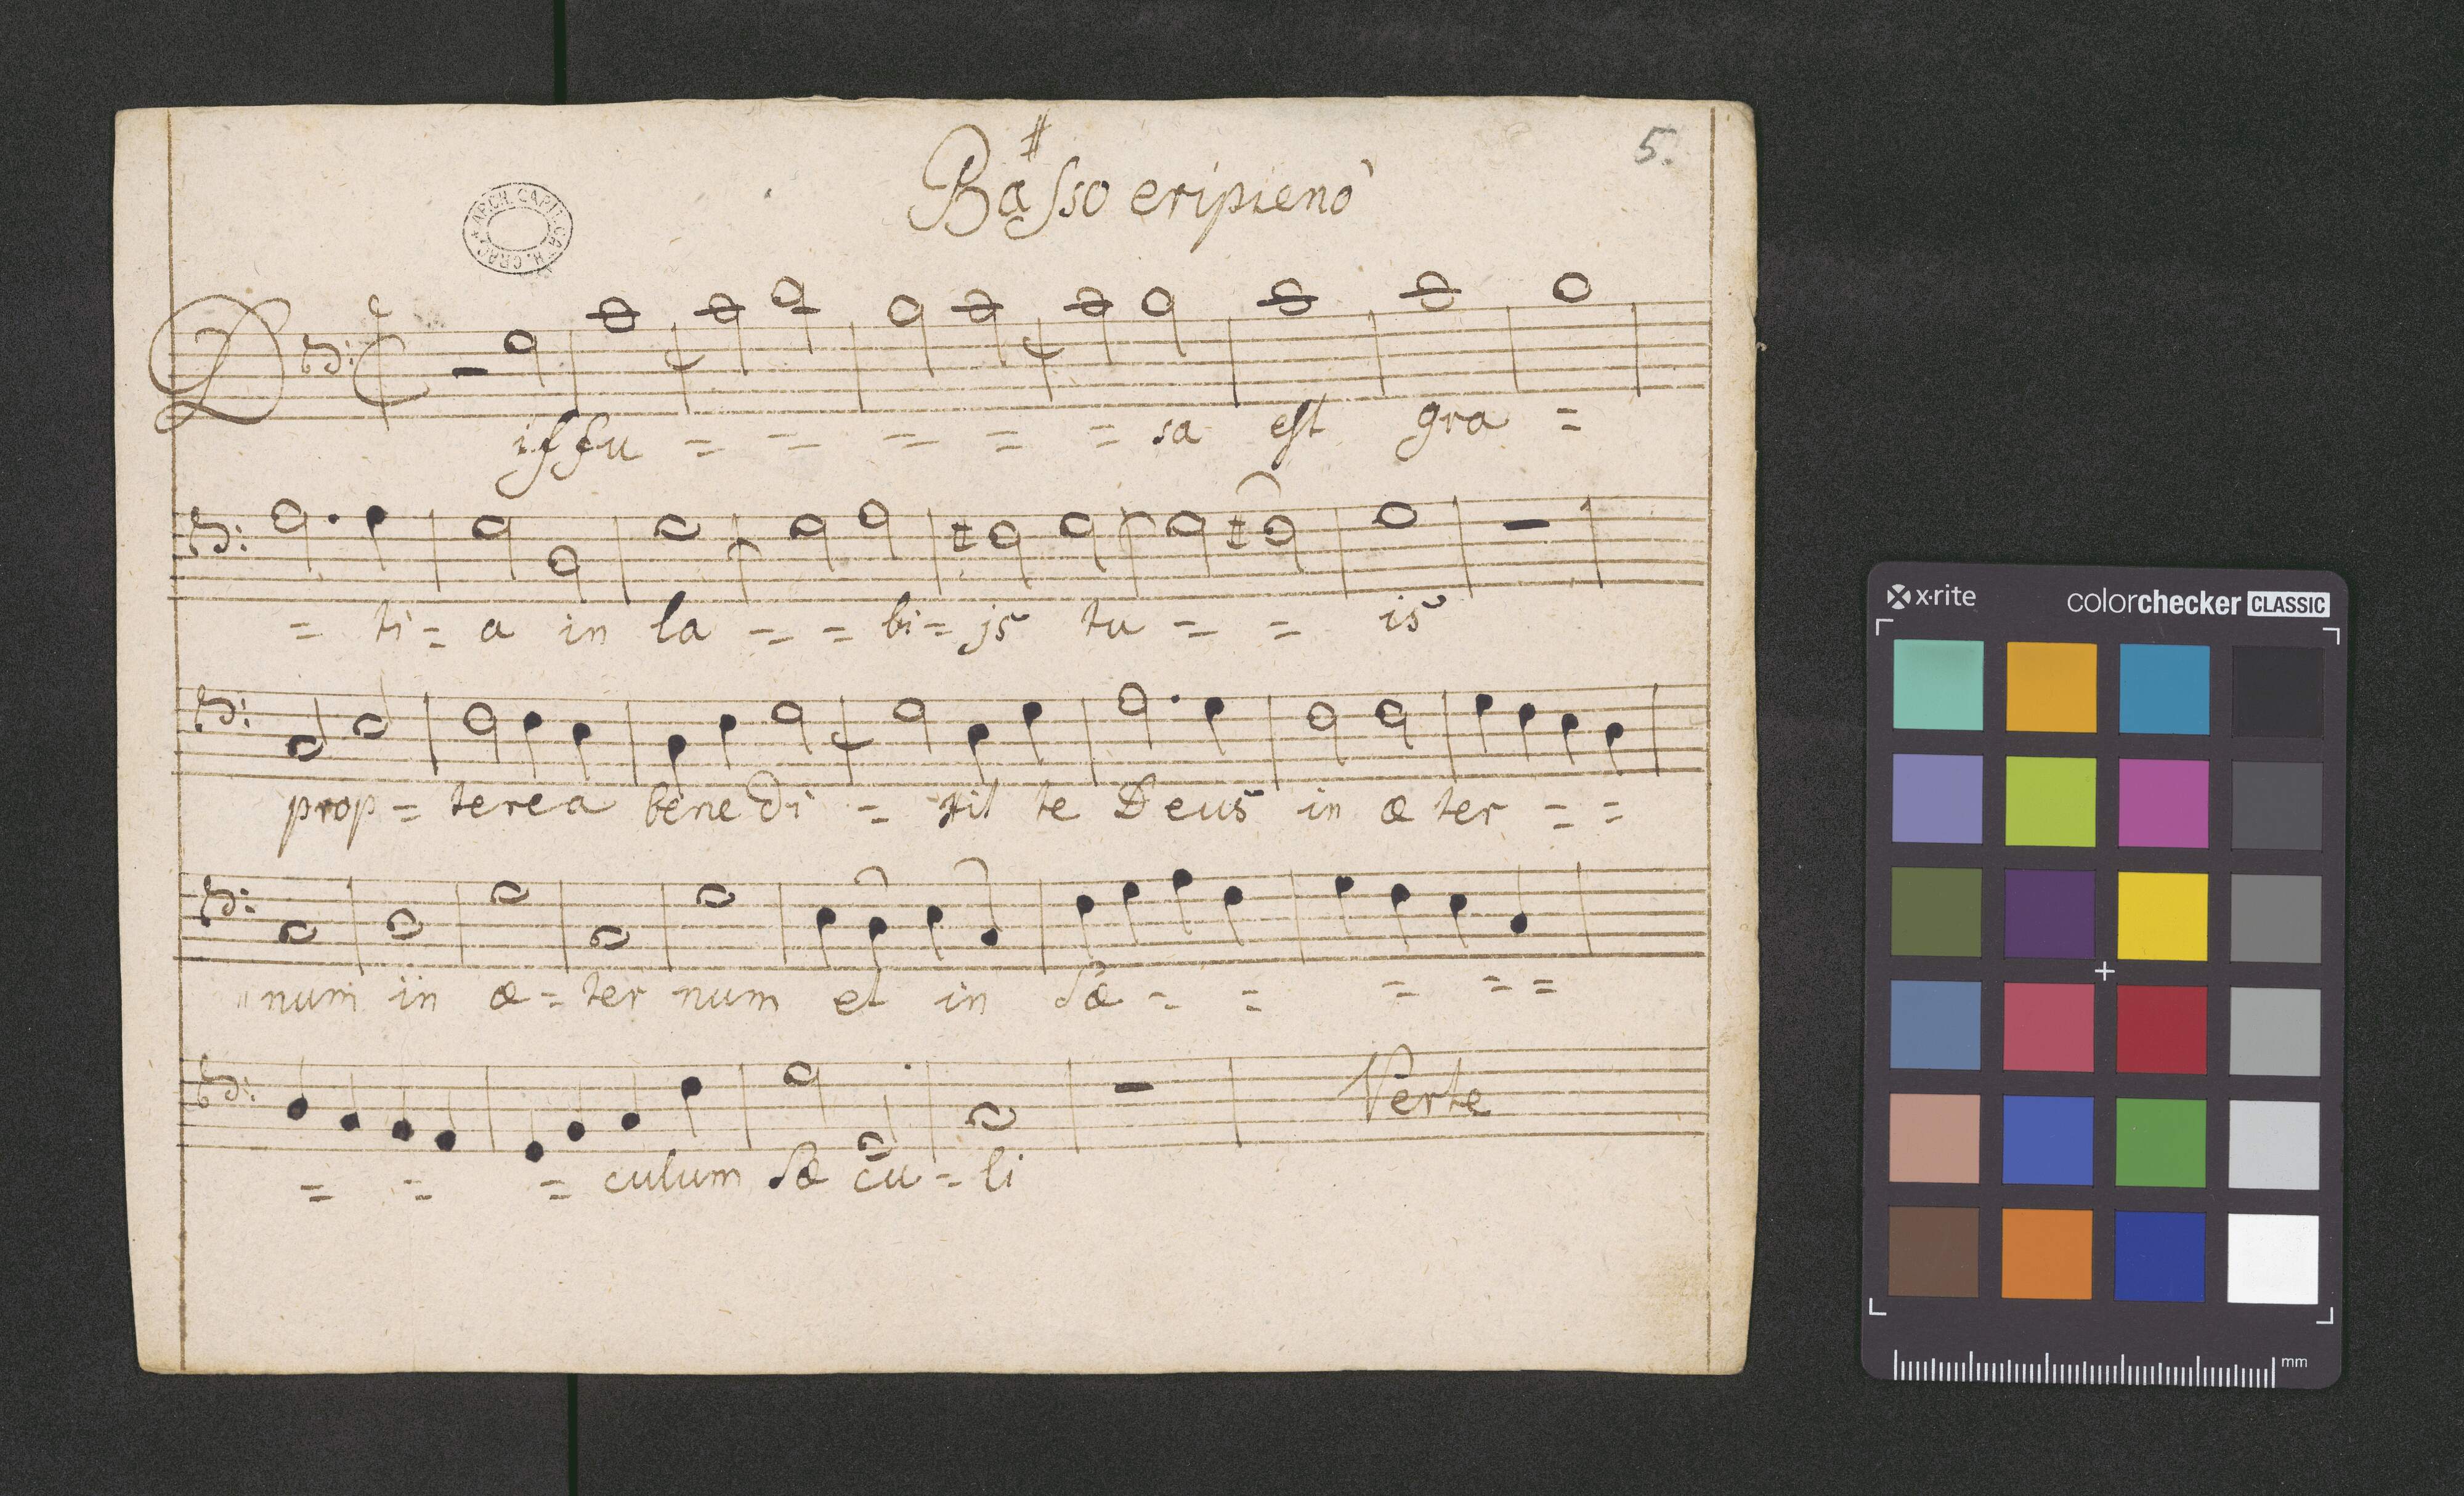 5.
Baſso eripieno
ARCH. CAPIT. CATH. CRAC.
Diffu = = = = = sa eſt gra =
= ti = a in la = = bi = js tu = = is
prop = terea benedi = xit te Deus in æter = =
num in æ = ternum et in sæ = = = = =
= = = culum sæcu = li
Verte
x·rite
colorchecker CLASSIC
mm